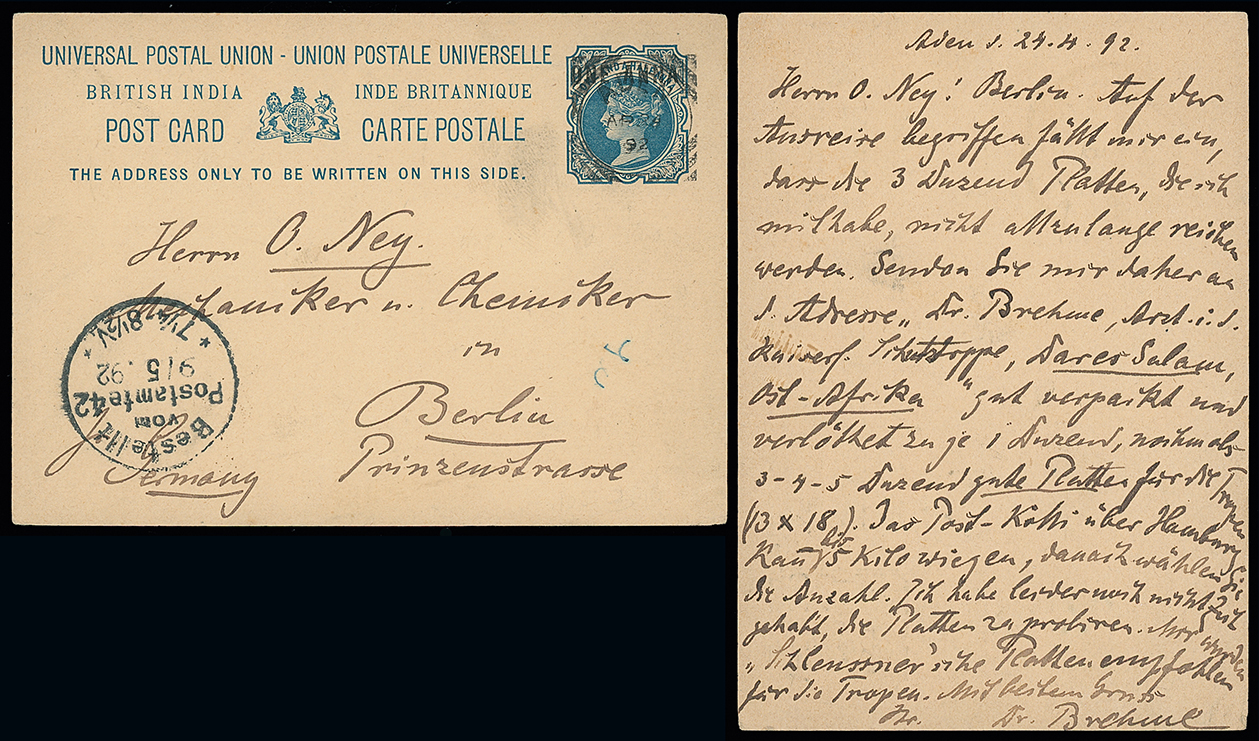 UNIVERSAL POSTAL UNION - UNION POSTALE UNIVERSELLE
BRITISH INDIA INDE BRITANNIQUE
POST CARD CARTE POSTALE
THE ADDRESS ONLY TO BE WRITTEN ON THIS SIDE.
ONE ANNA
AP
92
Herrn O. Ney.
Mechaniker u. Chemiker
in
Berlin
Prinzenstrasse
Germany
Bestellt
vom
Postamte 42
9/5.92
* 7¼-8½V. *
Aden d. 24.4.92.
Herrn O. Ney! Berlin. Auf der
Ausreise begriffen fällt mir ein,
dass die 3 Duzend Platten, die ich
mithabe, nicht allzulange reichen
werden. Senden Sie mir daher an
d. Adresse „Dr. Brehme, Arzt i. d.
Kaiserl. Schutztrppe, Dares Salam,
Ost-Afrika" gut verpackt und
verlöthet zu je 1 Duzend, nochmals
3-4-5 Duzend gute Platten für die Tropen
(13 x 18). Das Post-Kolli über Hamburg
kann bis 5 Kilo wiegen, danach wählen Sie
die Anzahl. Ich habe leider noch nicht Zeit
gehabt, die Platten zu probiren. Mir wurden
„Schleussner'sche Platten empfohlen
für die Tropen. Mit bestem Gruss
Ihr. Dr. Brehme